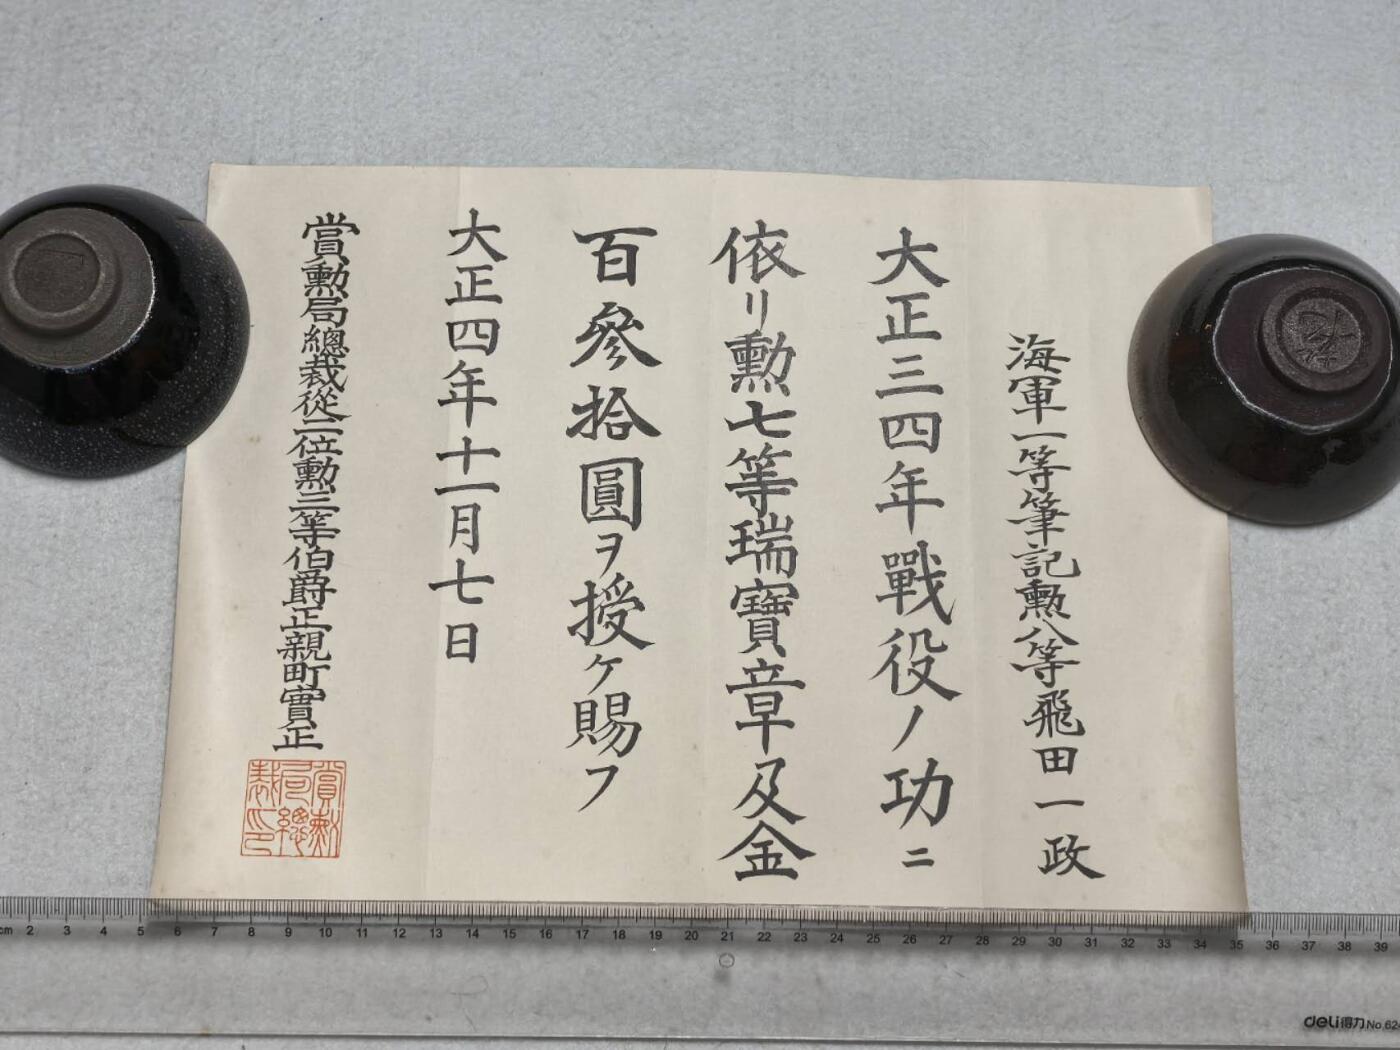 海軍一等筆記勲八等飛田一政
大正三四年戰役ノ功ニ
依リ勲七等瑞寶章及金
百參拾圓ヲ授ケ賜フ
大正四年十一月七日
賞勲局總裁從二位勲三等伯爵正親町實正
賞勲局總裁印
cm 2 3 4 5 6 7 8 9 10 11 12 13 14 15 16 17 18 19 20 21 22 23 24 25 26 27 28 29 30 31 32 33 34 35 36 37 38 39
deli得力 No.62